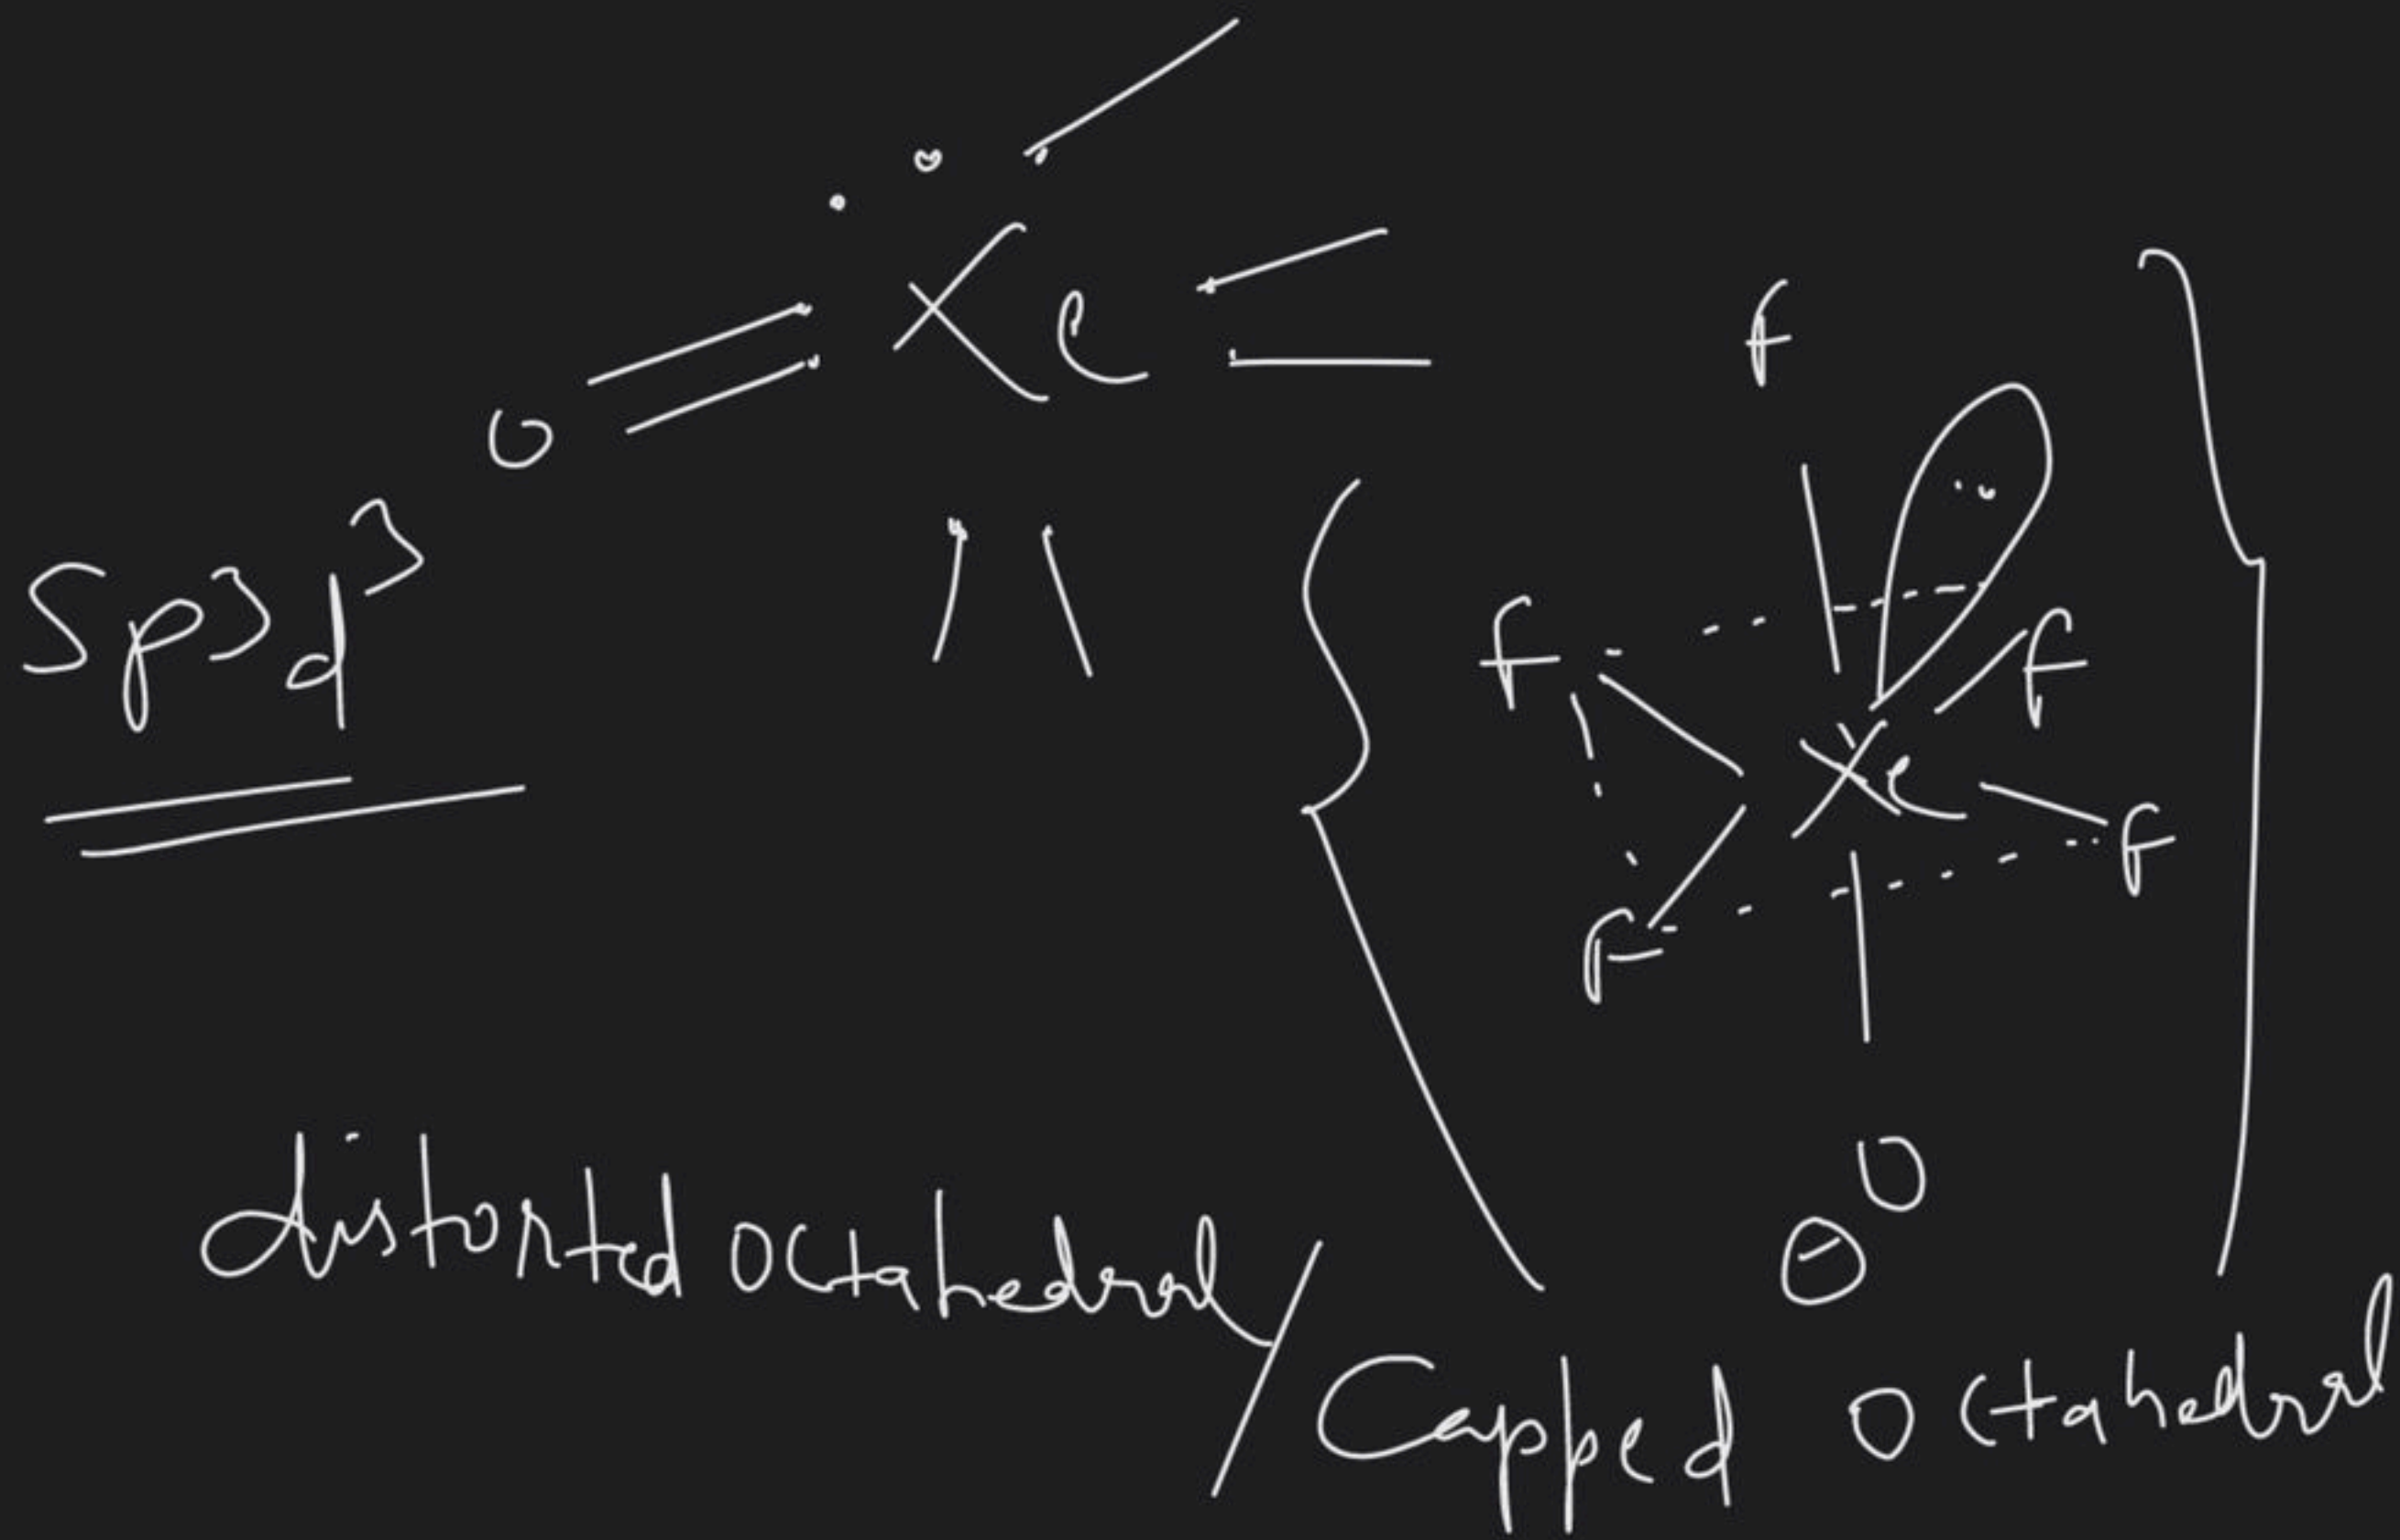 Xe
O
f
sp3d3
f
f
Xe
f
F
O
⊖
distorted octahedral/
Capped octahedral